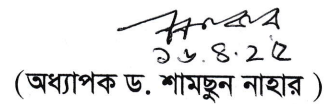 ১৬.৪.২৫
(অধ্যাপক ড. শামছুন নাহার )